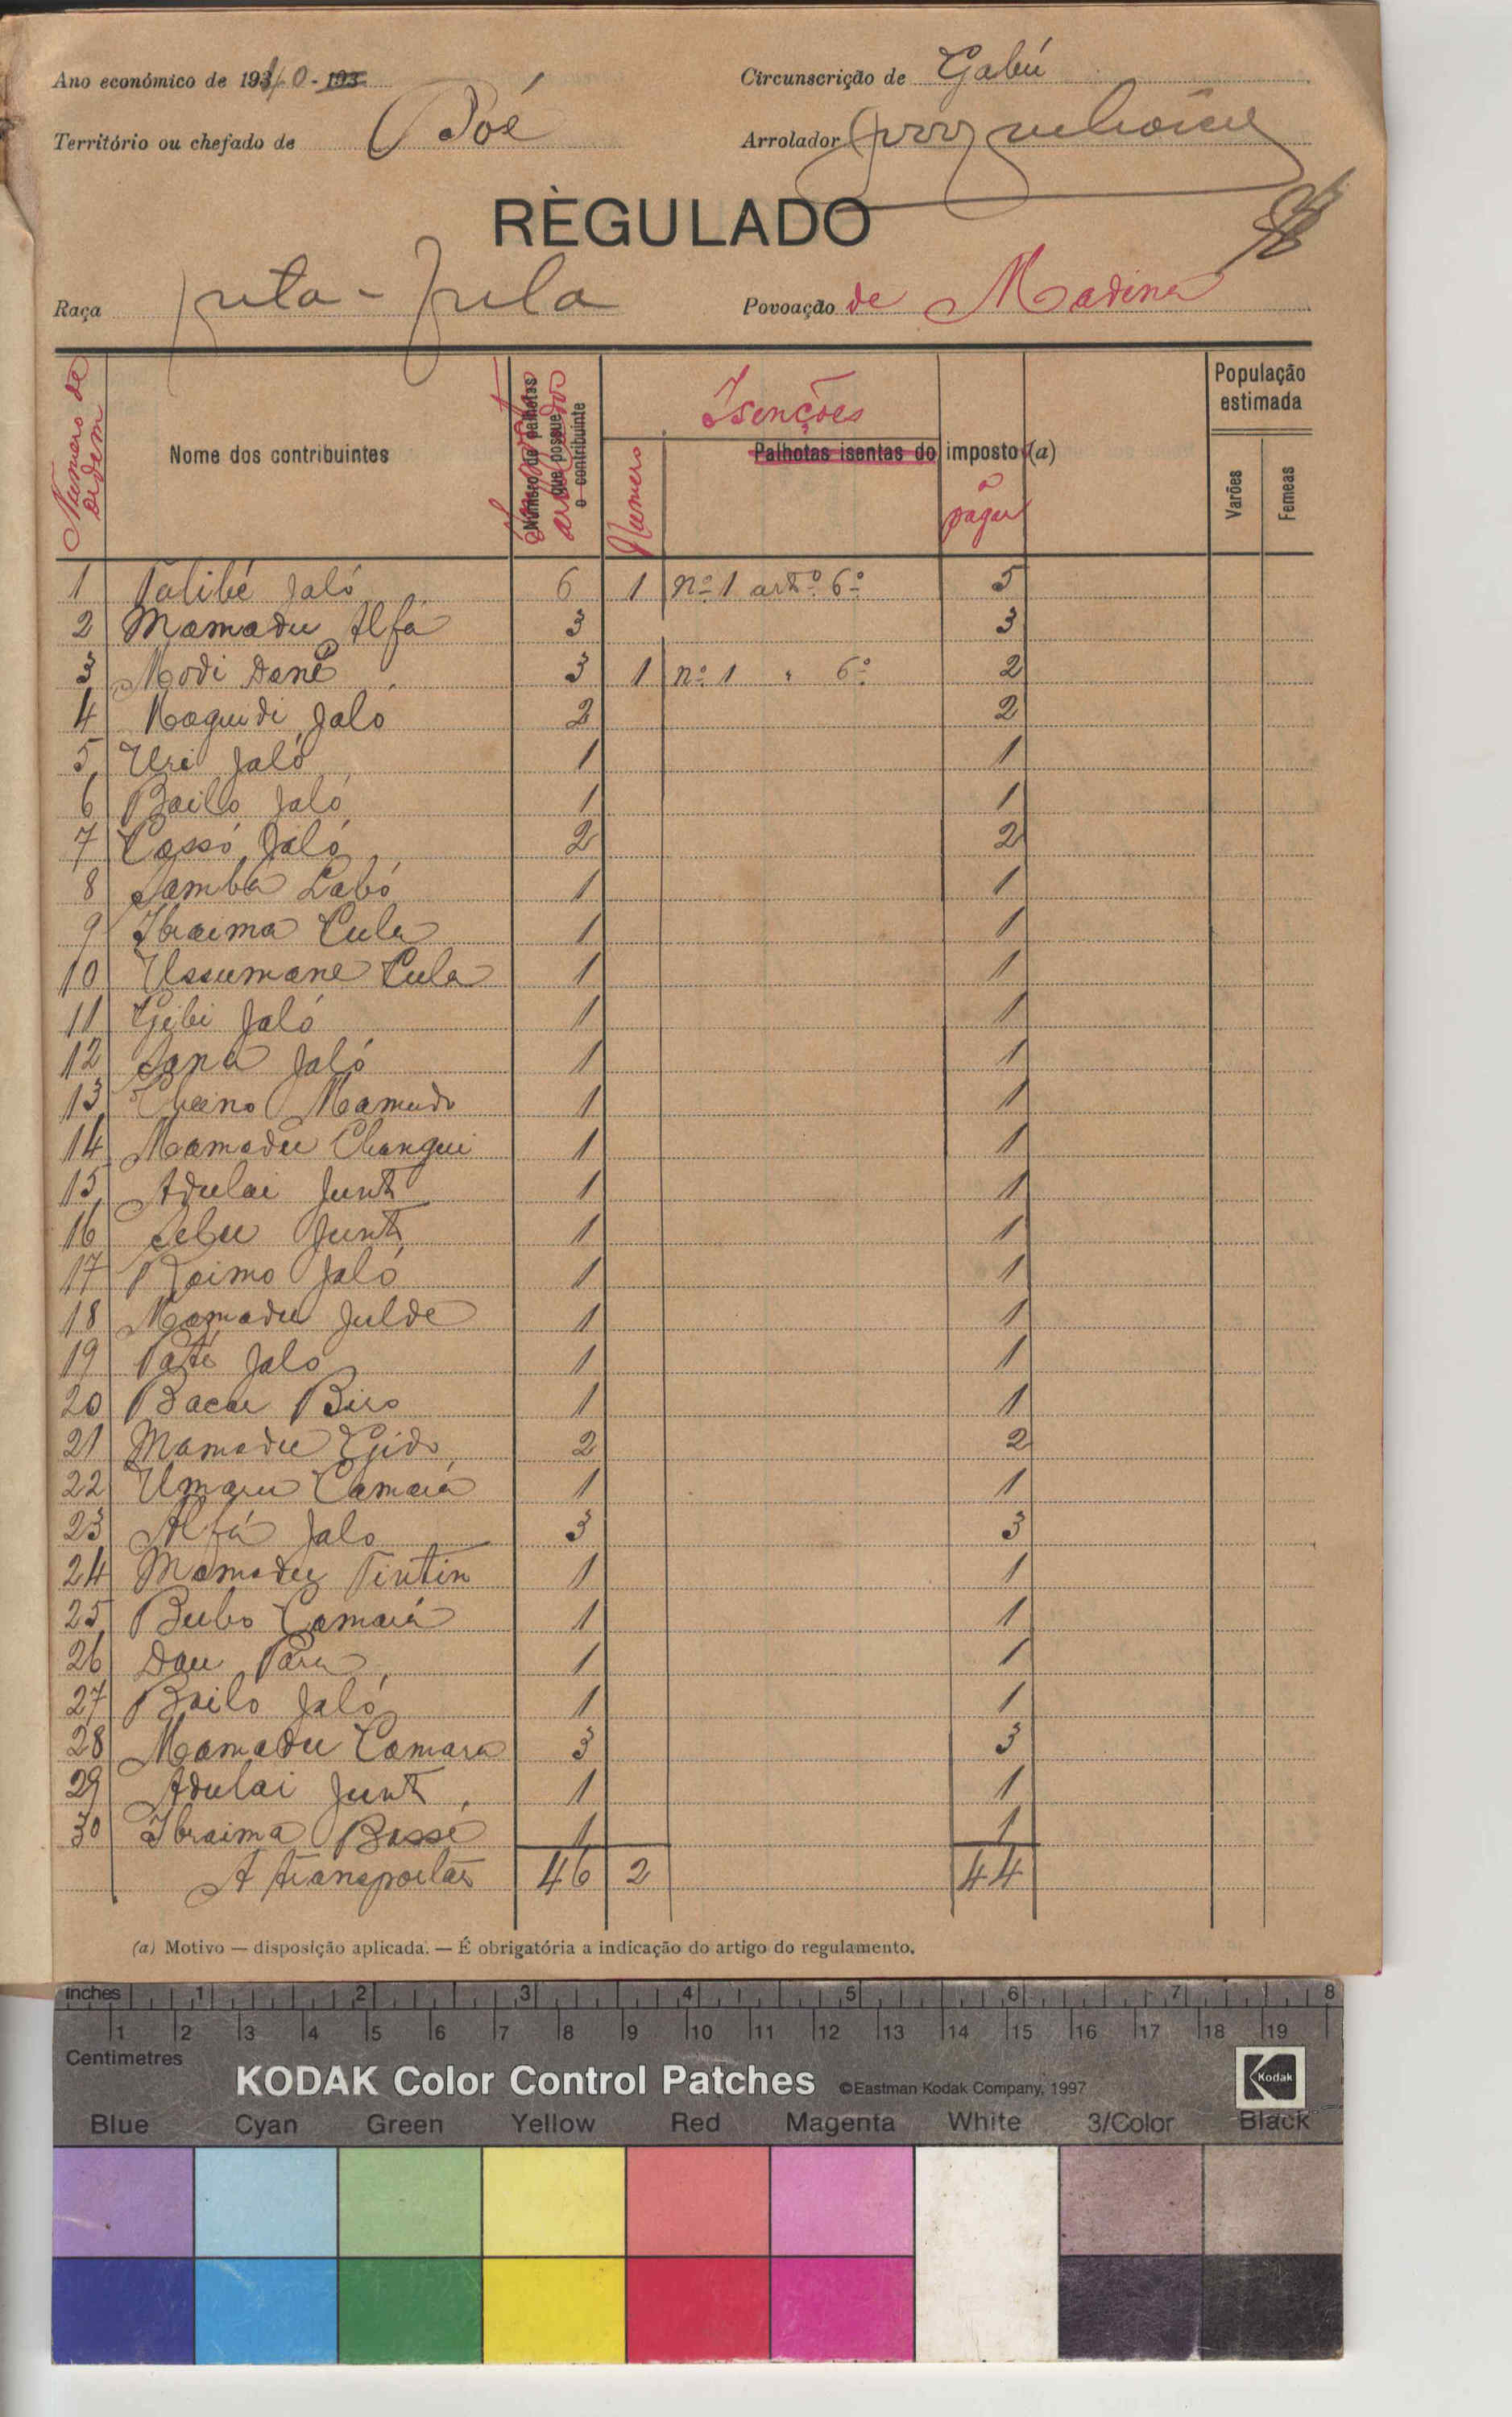 Ano económico de 1940 - 193
Circunscrição de Gabú
Território ou chefado de Boé
Arrolador
RÈGULADO
Raça Futa-Fula
Povoação de Madina
Numero de ordem
Nome dos contribuintes
Número de palhotas que possue o contribuinte
arrolados
Isenções
Numero
Palhotas isentas do imposto (a)
a pagar
População estimada
Varões
Femeas
1 Talibé Jaló 6 1 nº 1 artº 6º 5
2 Mamadu Alfá 3 3
3 Modi Dané 3 1 nº 1 " 6º 2
4 Maguidi Jaló 2 2
5 Uri Jaló 1 1
6 Bailo Jaló 1 1
7 Cossó Jaló 2 2
8 Samba Labó 1 1
9 Ibraima Cula 1 1
10 Ussumane Cula 1 1
11 Gibi Jaló 1 1
12 Sana Jaló 1 1
13 Cherno Mamudo 1 1
14 Mamadu Changui 1 1
15 Adulai Junt 1 1
16 Selu Junt 1 1
17 Raimo Jaló 1 1
18 Mamadu Julde 1 1
19 Paté Jalo 1 1
20 Bacar Biro 1 1
21 Mamadu Egido 2 2
22 Umaru Camará 1 1
23 Alfá Jalo 3 3
24 Mamadu Tintin 1 1
25 Bubo Camará 1 1
26 Dau Para 1 1
27 Bailo Jaló 1 1
28 Mamadu Camara 3 3
29 Adulai Junt 1 1
30 Ibraima Bassé 1 1
A transportar 46 2 44
(a) Motivo — disposição aplicada. — É obrigatória a indicação do artigo do regulamento.
Inches 1 2 3 4 5 6 7 8
1 2 3 4 5 6 7 8 9 10 11 12 13 14 15 16 17 18 19
Centimetres
KODAK Color Control Patches ©Eastman Kodak Company, 1997 Kodak
Blue Cyan Green Yellow Red Magenta White 3/Color Black